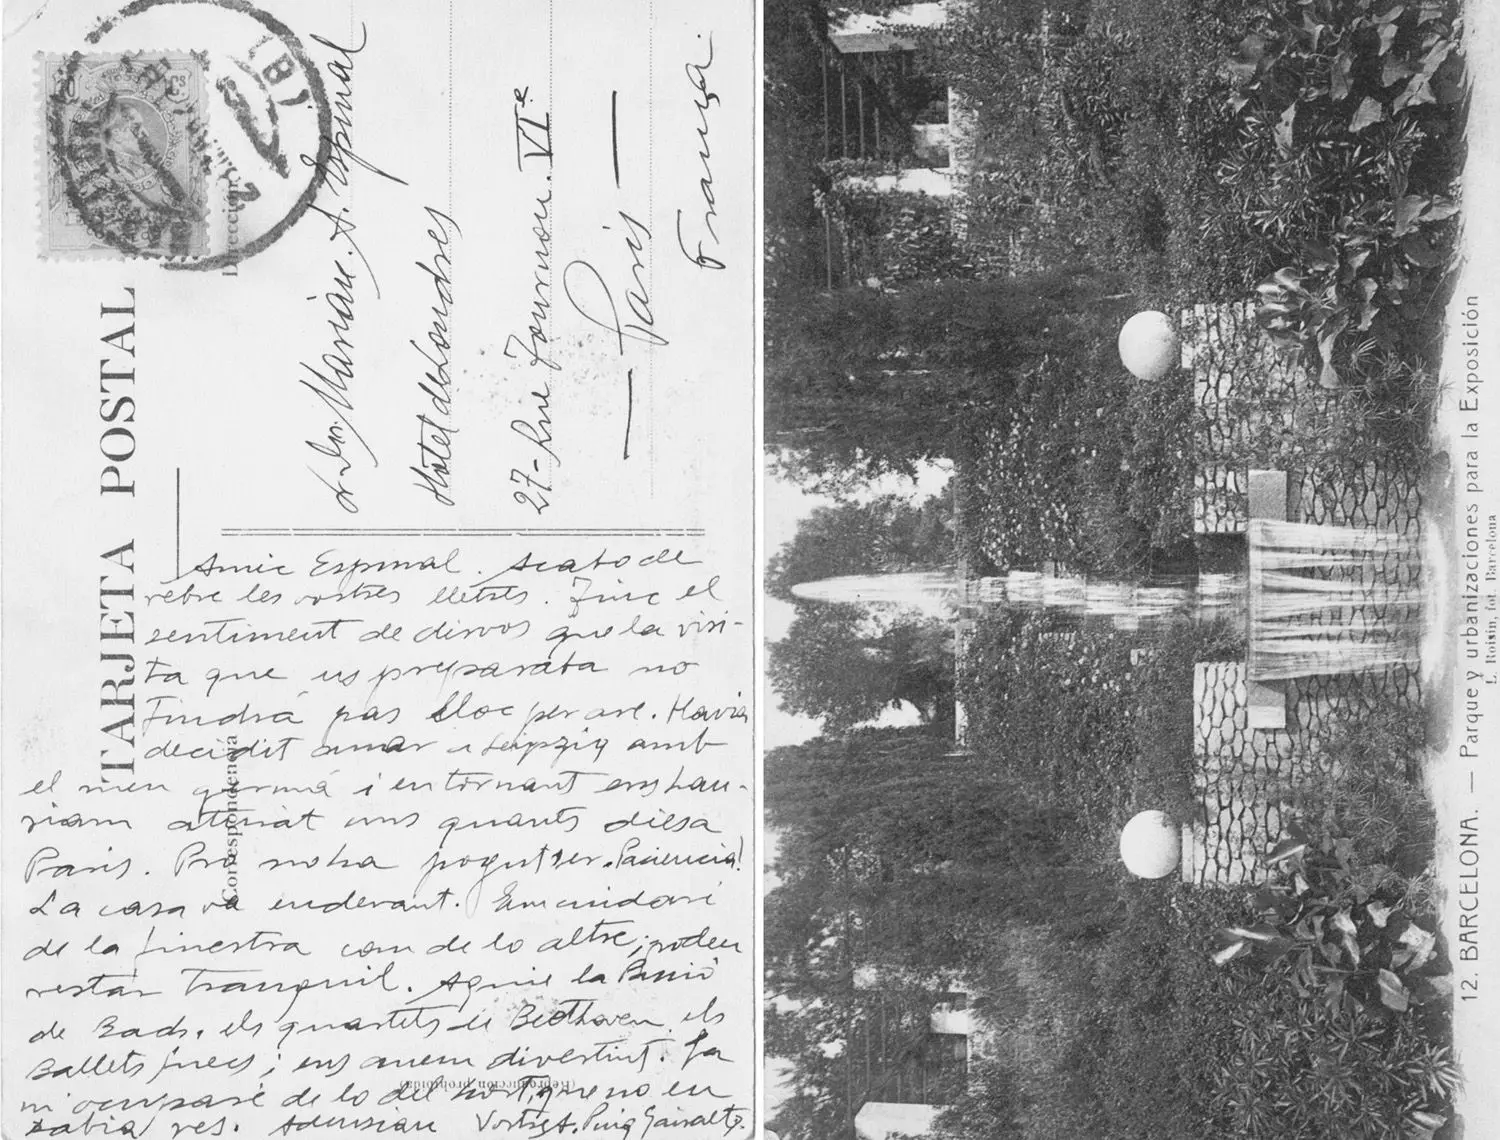 TARJETA POSTAL
Dirección
Correspondencia
Sr Dn. Marian. A. Espinal
Hôtel de Londres
27 - Rue Tournon. VIe
— Paris —
França.
Amic Espinal. Acabo de
rebre les vostres lletres. Tinc el
sentiment de dirvos que la visi-
ta que us preparaba no
tindrà pas lloc per are. Havia
decidit anar a Leipzig amb
el meu germà i en tornant ens hau-
riam aturat uns quants dies a
Paris. Pro no ha pogut ser. Paciencia!
La casa va endevant. Em cuidaré
de la finestra com de lo altre; poden
restar tranquil. Aquí la Passió
de Bach, els quartets de Beethoven, els
Ballets ; ens anem divertint. Ja
m'ocuparé de lo del que no en
sabia res. Adeusiau Vostre A. Puig Gairalt.
(Reproducción prohibida)
12. BARCELONA. — Parque y urbanizaciones para la Exposición
L. Roisin, fot. Barcelona